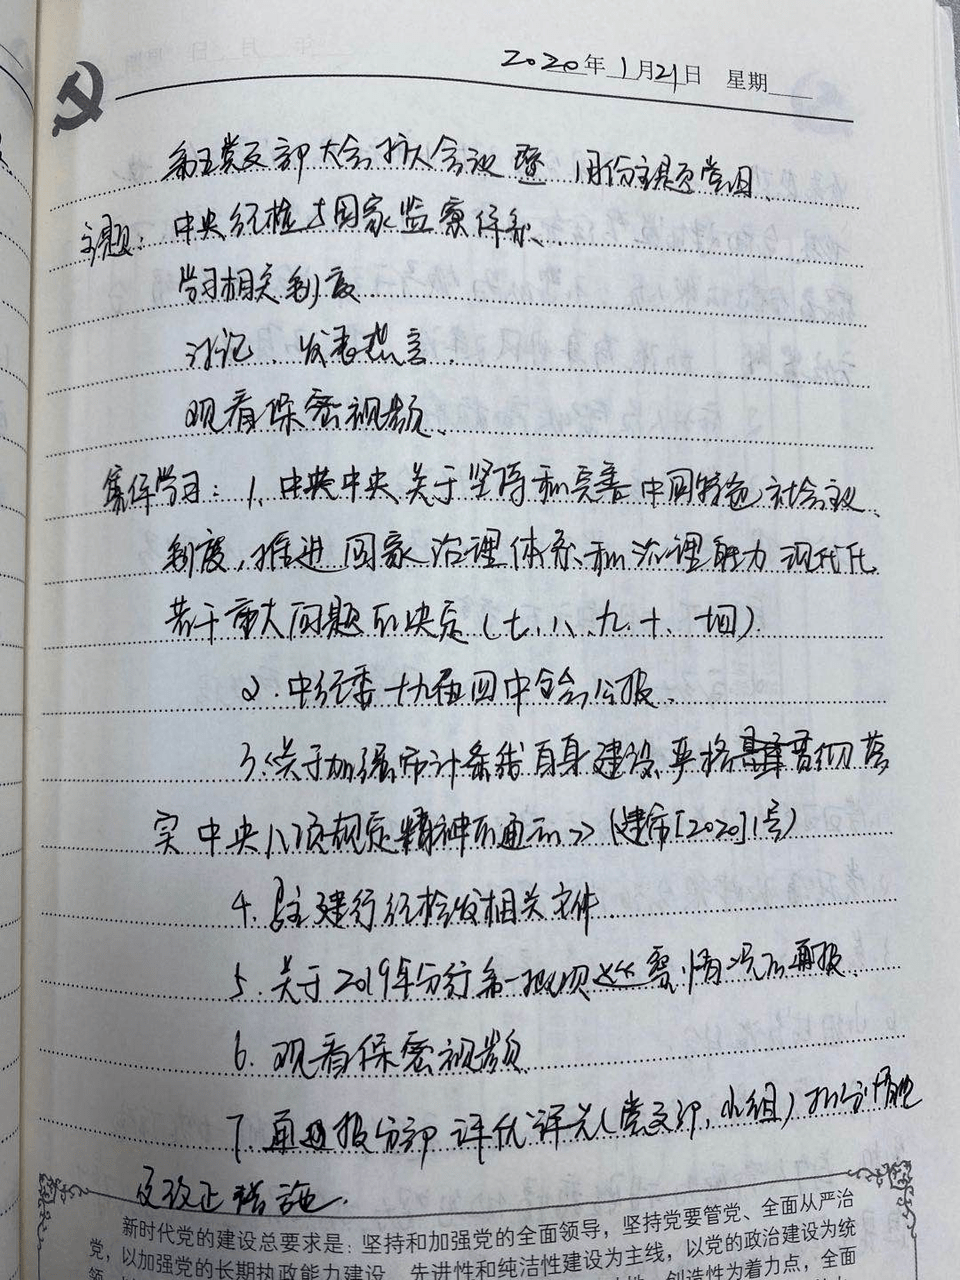 2020年1月21日 星期
第五党支部大会扩大会议暨1月份主题党日
主题：中央纪检与国家监察体系.
学习相关制度
讨论、发表感言.
观看保密视频.
集体学习：1、中共中央关于坚持和完善中国特色社会主义
制度,推进国家治理体系和治理能力现代化
若干重大问题的决定(七、八、九、十、十四).
2.中纪委十九届四中全会公报.
3.《关于加强审计条线自身建设严格贯彻落
实中央八项规定精神的通知》(建审[2020]1号)
4.驻建行纪检发相关文件.
5.关于2019年分行第一批 情况的通报.
6.观看保密视频
7. 报分部评优评先(党支部,小组) 情况
及改正措施.
新时代党的建设总要求是：坚持和加强党的全面领导，坚持党要管党、全面从严治
党，以加强党的长期执政能力建设、先进性和纯洁性建设为主线，以党的政治建设为统
领 创造性为着力点，全面